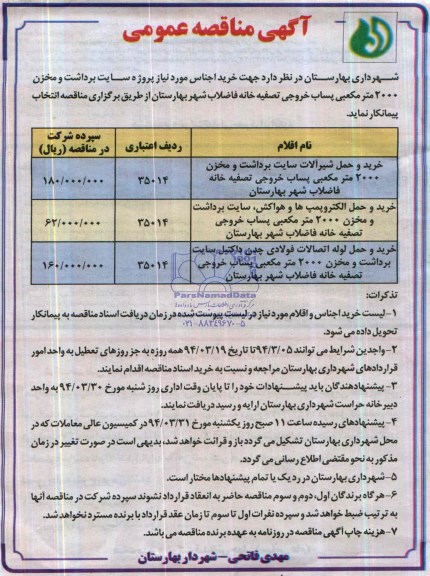 آگهی مناقصه عمومی
شهرداری بهارستان در نظر دارد جهت خرید اجناس مورد نیاز پروژه سایت برداشت و مخزن
۲۰۰۰ متر مکعبی پساب خروجی تصفیه خانه فاضلاب شهر بهارستان از طریق برگزاری مناقصه انتخاب
پیمانکار نماید.
نام اقلام
ردیف اعتباری
سپرده شرکت
در مناقصه (ریال)
خرید و حمل شیرآلات سایت برداشت و مخزن
۲۰۰۰ متر مکعبی پساب خروجی تصفیه خانه
فاضلاب شهر بهارستان
۳۵۰۱۴
۱۸۰/۰۰۰/۰۰۰
خرید و حمل الکتروپمپ ها و هواکش، سایت برداشت
و مخزن ۲۰۰۰ متر مکعبی پساب خروجی
تصفیه خانه فاضلاب شهر بهارستان
۳۵۰۱۴
۶۲/۰۰۰/۰۰۰
خرید و حمل لوله اتصالات فولادی چدن داکتیل سایت
برداشت و مخزن ۲۰۰۰ متر مکعبی پساب خروجی
تصفیه خانه فاضلاب شهر بهارستان
۳۵۰۱۴
۱۶۰/۰۰۰/۰۰۰
ParsNamadData
۰۲۱-۸۸۳۴۹۶۷۰-۵
تذکرات:
۱-لیست خرید اجناس و اقلام مورد نیاز در لیست پیوست شده در زمان دریافت اسناد مناقصه به پیمانکار
تحویل داده می شود.
۲-واجدین شرایط می توانند ۹۴/۳/۰۵ تا تاریخ ۹۴/۰۳/۱۹ همه روزه به جز روزهای تعطیل به واحد امور
قراردادهای شهرداری بهارستان مراجعه و نسبت به خرید اسناد مناقصه اقدام نمایند.
۳- پیشنهاددهندگان باید پیشنهادات خود را تا پایان وقت اداری روز شنبه مورخ ۹۴/۰۳/۳۰ به واحد
دبیر خانه حراست شهرداری بهارستان ارایه و رسید دریافت نمایند.
۴- پیشنهادهای رسیده ساعت ۱۱ صبح روز یکشنبه مورخ ۹۴/۰۳/۳۱ در کمیسیون عالی معاملات که در
محل شهرداری بهارستان تشکیل می گردد باز و قرائت خواهد شد، بدیهی است در صورت تغییر در زمان
مذکور به نحو مقتضی اطلاع رسانی می گردد.
۵-شهرداری بهارستان در رد یک یا تمام پیشنهادها مختار است.
۶-هرگاه برندگان اول، دوم و سوم مناقصه حاضر به انعقاد قرارداد نشوند سپرده شرکت در مناقصه آنها
به ترتیب ضبط خواهد شد و سپرده نفرات اول تا سوم تا زمان عقد قرارداد با برنده مسترد نخواهد شد.
۷-هزینه چاپ آگهی مناقصه در روزنامه به عهده برنده مناقصه می باشد.
مهدی فاتحی-شهردار بهارستان